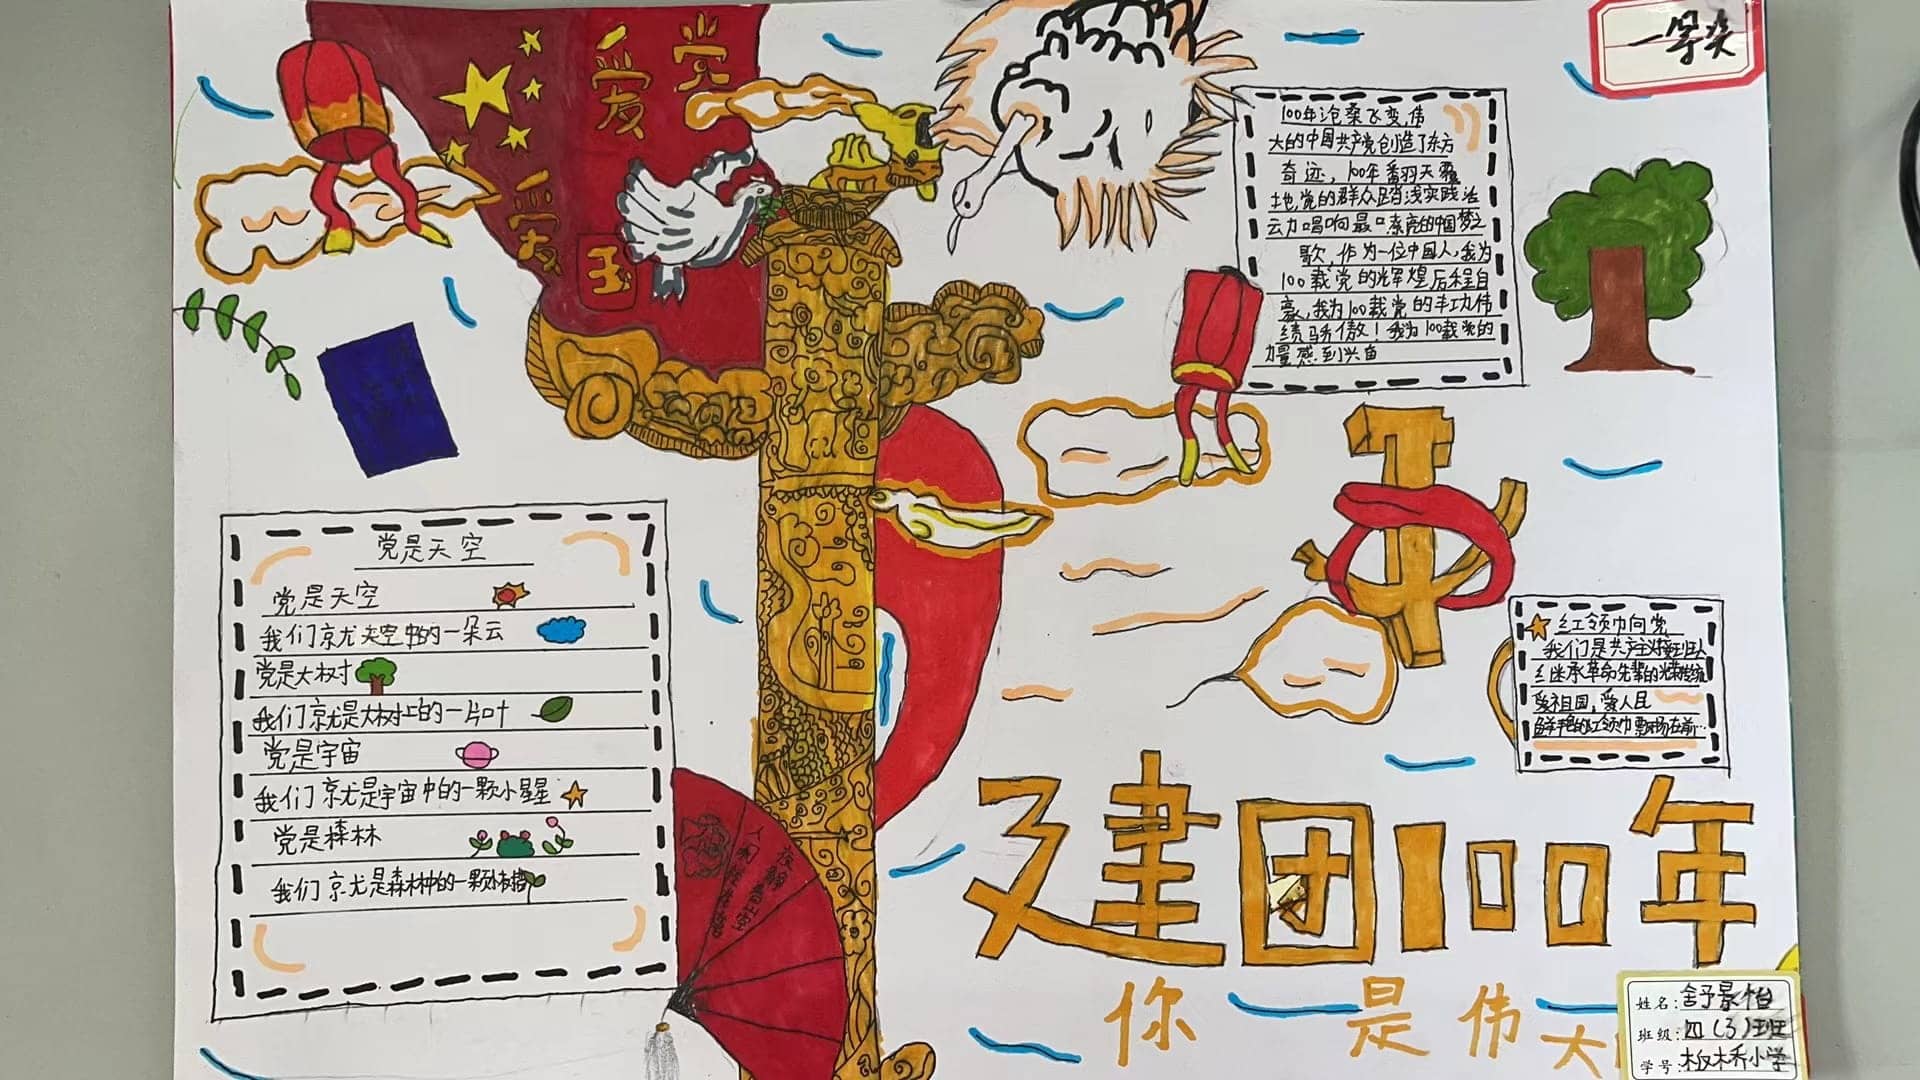 一等奖
爱党
爱国
100年沧桑飞变,伟
大的中国共产党创造了东方
奇迹,100年翻天覆
地,党的群众路浅实践活
云力唱响最口嘹亮的中国梦之
歌,作为一位中国人,我为
100载党的辉煌历程自
豪,我为100载党的丰功伟
绩骄傲!我为100载党的
力量感到兴奋
党是天空
党是天空
我们就是天空中的一朵云
党是大树
我们就是大树上的一片叶
党是宇宙
我们就是宇宙中的一颗小星星
党是森林
我们就是森林中的一颗小树苗
红领巾向党
我们是共产主义接班人
继承革命先辈的光荣传统
爱祖国,爱人民
鲜艳的红领巾飘扬在前…
建团100年
你是伟大
姓名:舒景怡
班级:四(3)班
学号:板桥小学